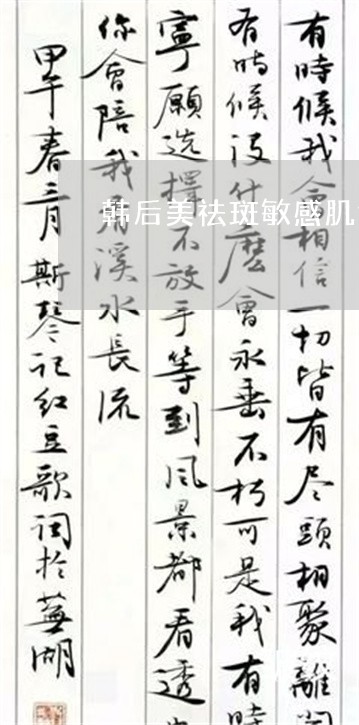 有時候我會相信一切皆有尽頭相聚離開
有時候沒什麽會永垂不朽可是我有時
寧願选擇不放手等到风景都看透也
你會陪我看溪水長流
甲午春三月斯琴记红豆歌词於蕪湖
韩后美祛斑敏感肌